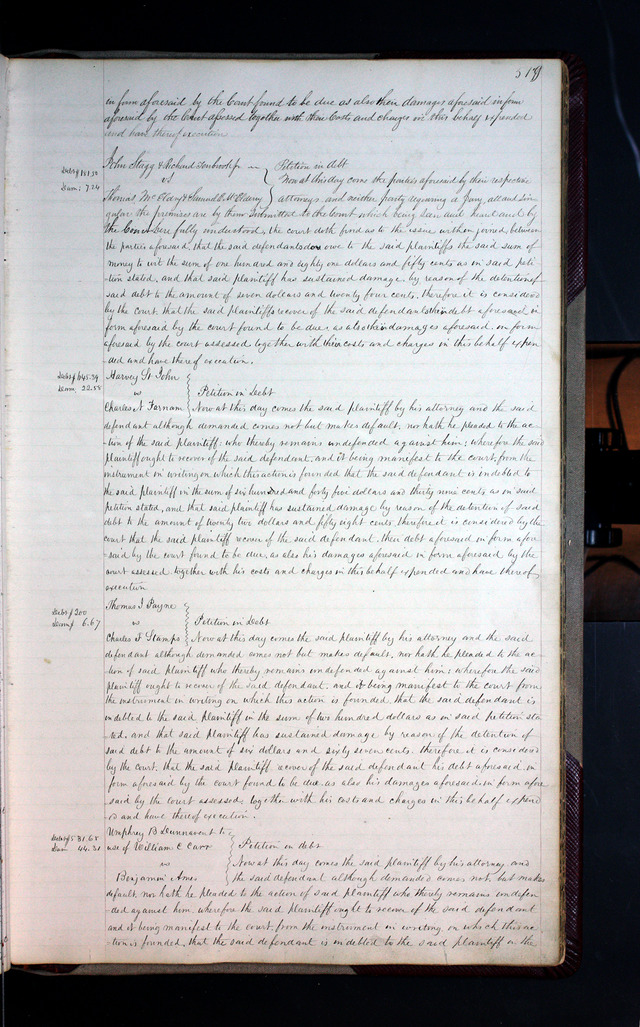 517
in form aforesaid by the Court found to be due as also their damages aforesaid in form
aforesaid by the Court assessed together with their Costs and charges in this behalf expended
and have thereof execution
John Stagg & Richard
Petition in debt
Debt $181.50
Dam: 7.24
vs
Now at this day come the parties aforesaid by their respective
Thomas & Samuel attorneys, and neither party requiring a Jury, all and sin-
gular the premises are by them submitted to the Court which being seen and heard and by
the Court here fully understood, the court doth find as to the issue within joined, between
the parties aforesaid, that the said defendants do owe to the said plaintiffs the said sum of
money to wit the sum of one hundred and eighty one dollars and fifty cents as in said peti-
tion stated, and that said plaintiff has sustained damage, by reason of the detention of
said debt to the amount of seven dollars and twenty four cents. therefore it is considered
by the court that the said plaintiffs recover of the said defendants their debt aforesaid in
form aforesaid by the court found to be due, as also their damages aforesaid in form
aforesaid by the court assessed together with their costs and charges in this behalf expen-
ded and have thereof execution.
Harvey St John
Debt $645.39
Dam. 22.58
vs
Petition in Debt
Charles A Farnam Now at this day comes the said plaintiff by his attorney and the said
defendant although demanded comes not but makes default, nor hath he pleaded to the ac-
tion of the said plaintiff: who thereby remains undefended against him: wherefore the said
plaintiff ought to recover of the said defendant. and it being manifest to the court, from the
instrument in writing on which this action is founded that the said defendant is indebted to
the said plaintiff in the sum of six hundred and forty five dollars and thirty nine cents as in said
petition stated, and that said plaintiff has sustained damage by reason of the detention of said
debt to the amount of twenty two dollars and fifty eight cents. therefore it is considered by the
court that the said plaintiff recover of the said defendant, their debt aforesaid in form afore
said by the court found to be due, as also his damages aforesaid in form aforesaid by the
court assessed, together with his costs and charges in this behalf expended and have thereof
execution
Thomas J Payne
Debt $200
Dam $ 6.67
vs
Petition in Debt
Charles F Stamps Now at this day comes the said plaintiff by his attorney and the said
defendant although demanded comes not but makes default, nor hath he pleaded to the ac-
tion of said plaintiff who thereby remains undefended against him: wherefore the said
plaintiff ought to recover of the said defendant. and it being manifest to the court from
the instrument in writing on which this action is founded, that the said defendant is
indebted to the said plaintiff in the sum of two hundred dollars as in said petition sta-
ted, and that said plaintiff has sustained damage by reason of the detention of
said debt to the amount of six dollars and sixty seven cents. therefore it is considered
by the court, that the said plaintiff recover of the said defendant his debt aforesaid in
form aforesaid by the court found to be due, as also his damages aforesaid, in form afore
said by the court assessed, together with his costs and charges in this behalf expend
ed and have thereof execution.
Umphrey B Dunnavent to
Debt $581.65
Dam 44.31
use of William C Carr
Petition in debt
vs
Now at this day comes the said plaintiff by his attorney and
Benjamin Ames
the said defendant although demanded comes not but makes
default, nor hath he pleaded to the action of said plaintiff who thereby remains undefen-
ded against him, wherefore the said plaintiff ought to recover of the said defendant
and it being manifest to the court, from the instrument in writing on which this ac-
tion is founded, that the said defendant is indebted to the said plaintiff in the